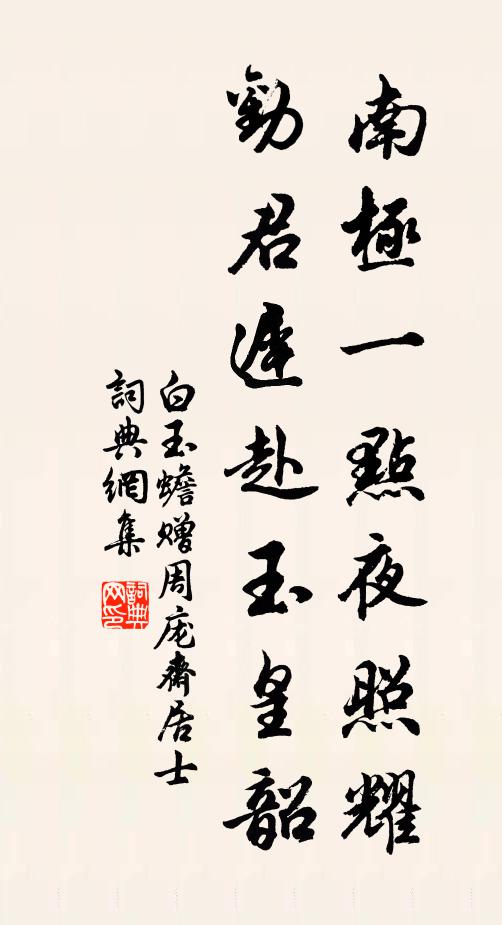 南極一點夜照耀
勸君遲赴玉皇韶
白玉蟾贈周庞齋居士
詞典網集
詞典
网印